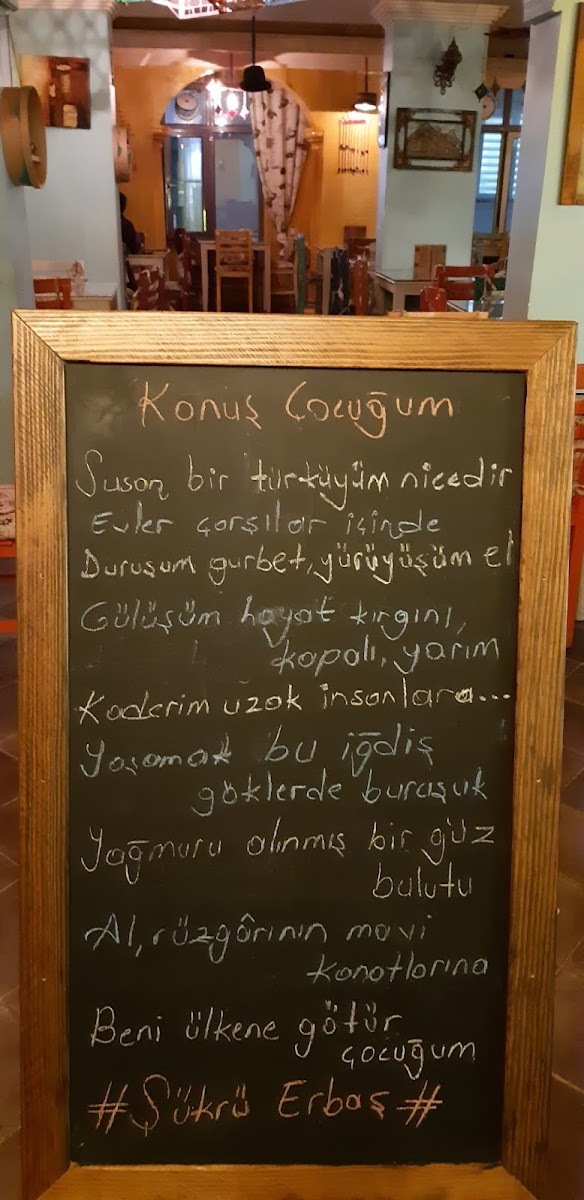 Konuş Çocuğum
Susan bir türküyüm nicedir
Evler çarşılar içinde
Duruşum gurbet, yürüyüşüm el
Gülüşüm hayat kırgını,
kapalı, yarım
Kaderim uzak insanlara...
Yaşamak bu iğdiş
göklerde buruşuk
Yağmuru alınmış bir güz
bulutu
Al, rüzgârının mavi
kanatlarına
Beni ülkene götür
çocuğum
#Şükrü Erbaş#